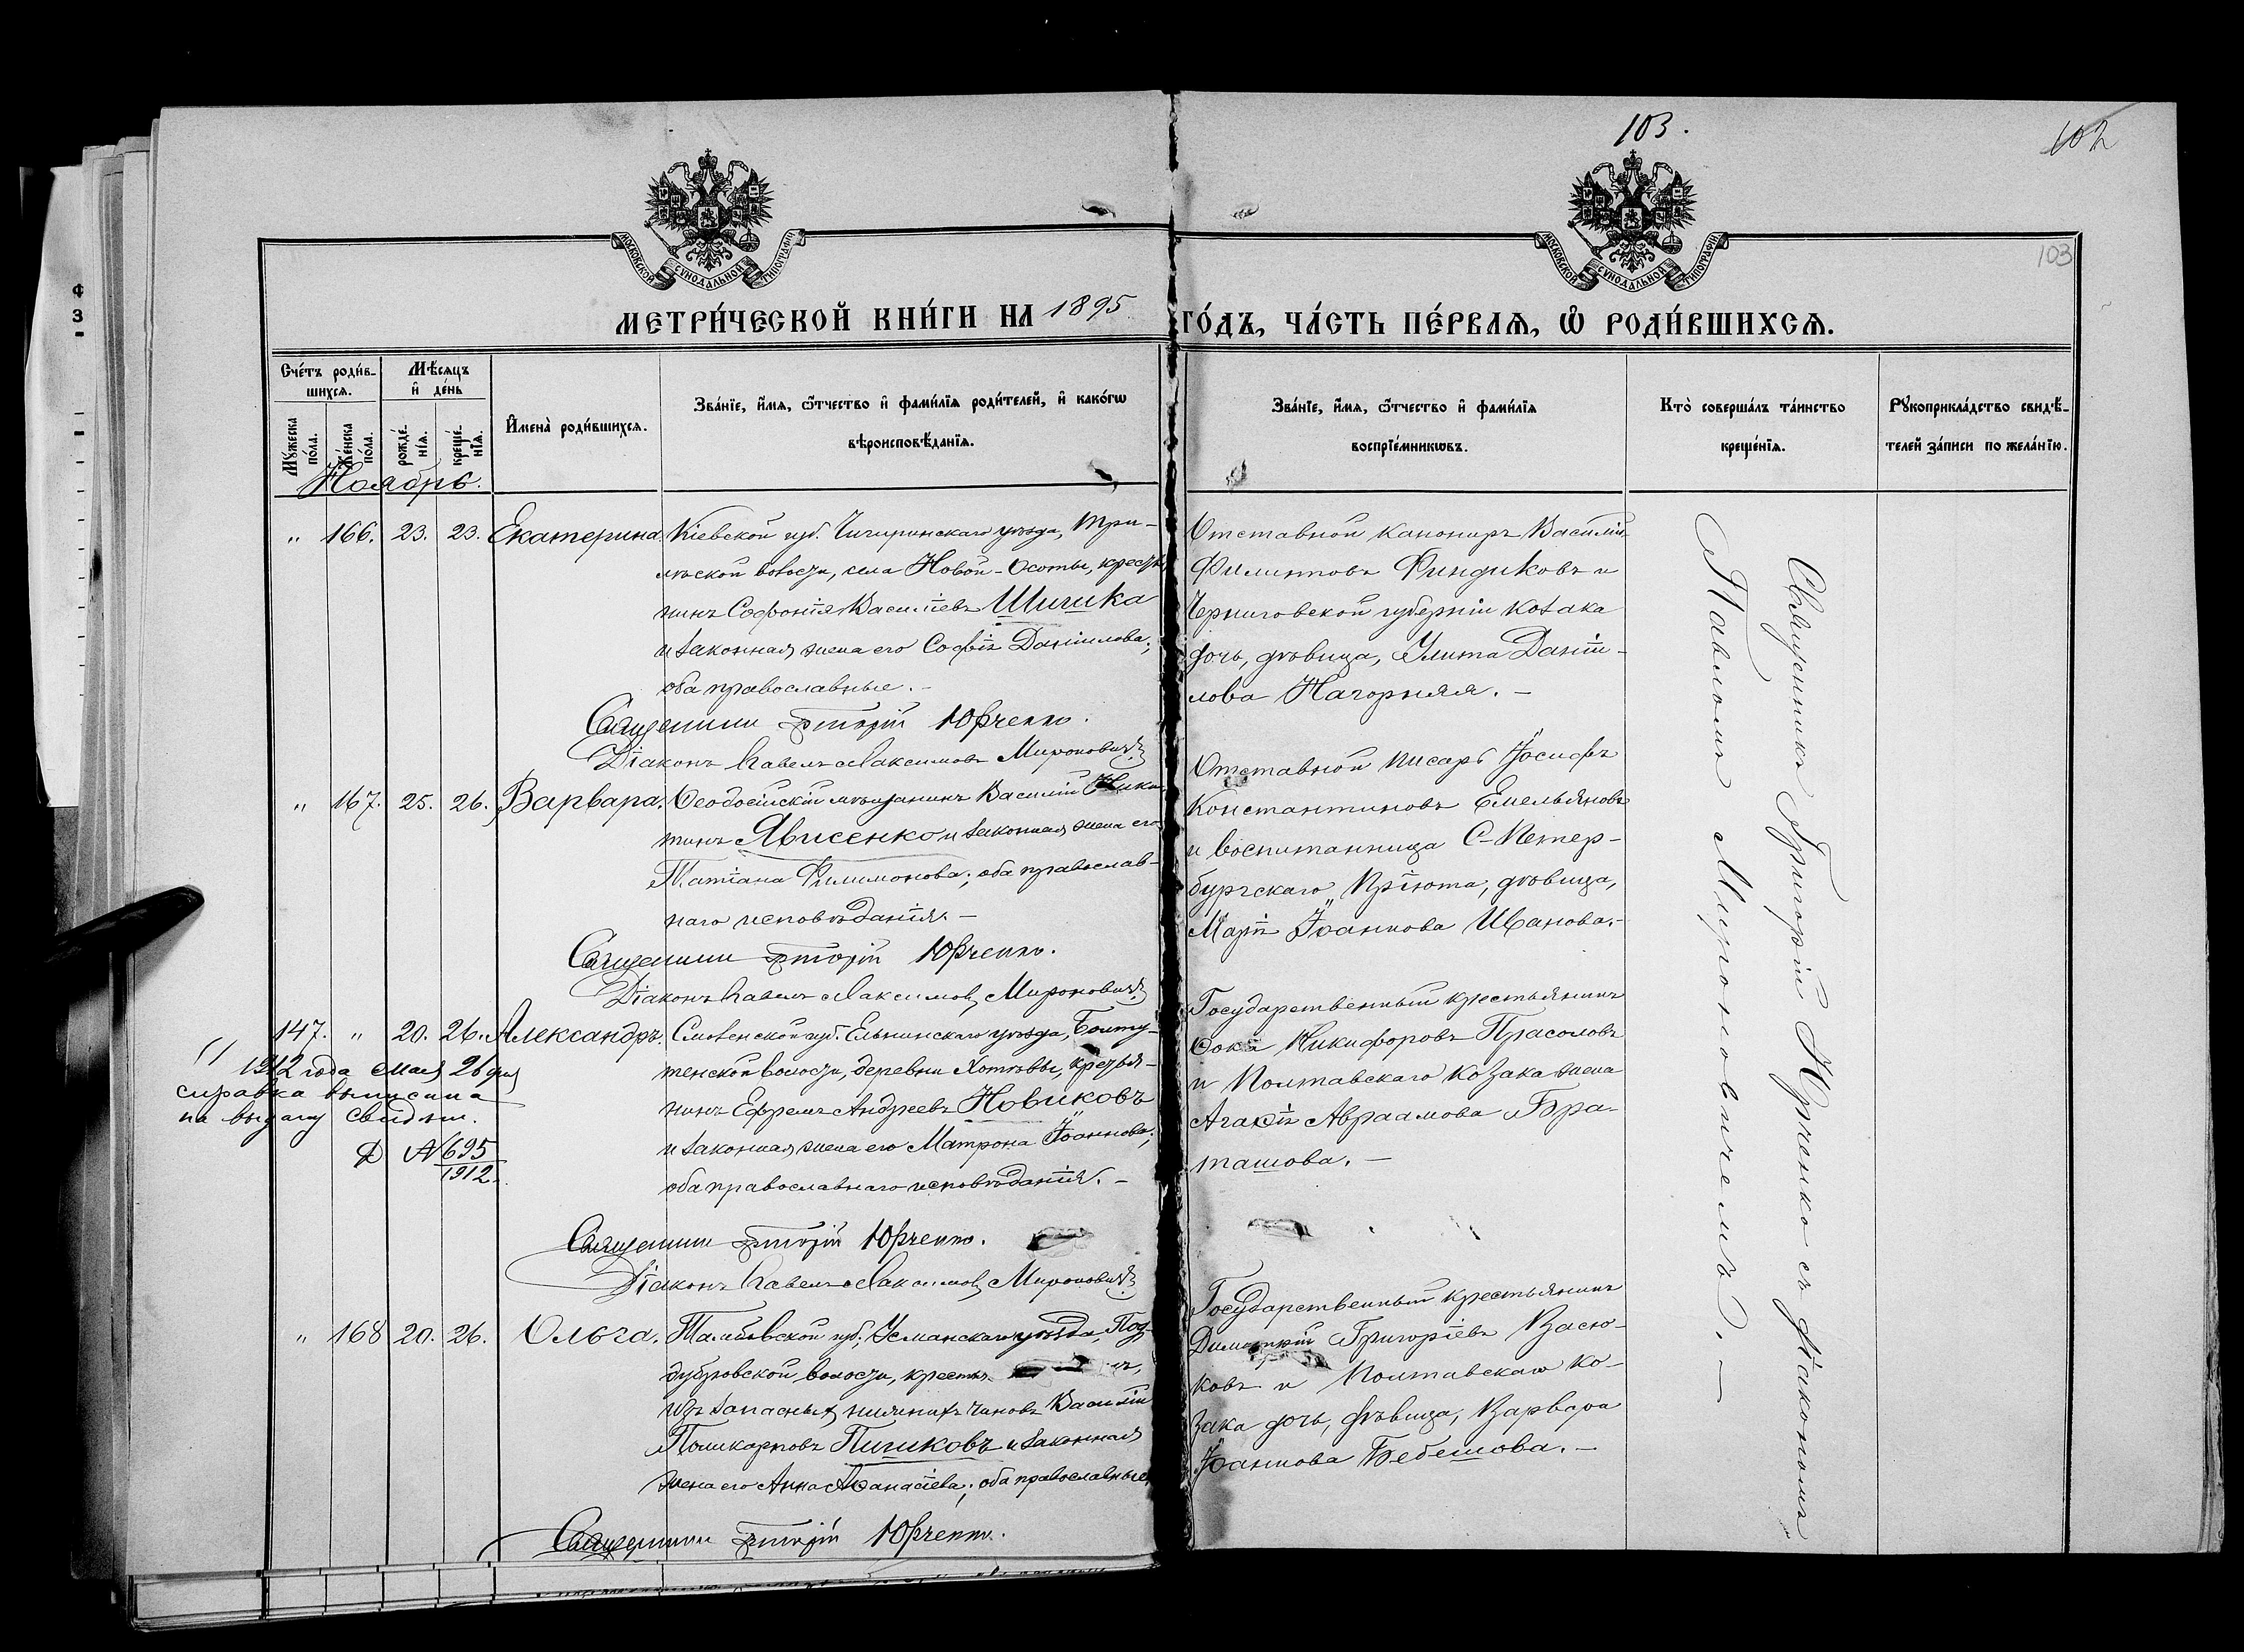 103.
102
103
МОСКОВСКОЙ СУНОДАЛЬНОЙ ТИПОГРАФІИ
МОСКОВСКОЙ СУНОДАЛЬНОЙ ТИПОГРАФІИ
МЕТРИ́ЧЕСКОЙ КНИ́ГИ НА 1895 ГО́ДЪ, ЧА́СТЬ ПЕ́РВАѦ, Ѡ҆ РОДИ́ВШИХСѦ.
Сче́тъ роди́в-
шихсѧ.
Мѣ́сѧцъ
и҆ де́нь
Мꙋ́жеска
по́ла.
Же́нска
по́ла.
рожде́-
нїѧ.
креще́-
нїѧ.
И҆мена̀ роди́вшихсѧ.
Зва́нїе, и҆́мѧ, ѻ҆́тчество и҆ фами́лїѧ роди́телей, и҆ како́гѡ
вѣроисповѣ́данїѧ.
Зва́нїе, и҆́мѧ, ѻ҆́тчество и҆ фами́лїѧ
воспрїе́мникѡвъ.
Кто̀ соверша́лъ та́инство
креще́нїѧ.
Рꙋкоприкла́дство свидѣ́-
телей за́писи по жела́нїю.
Ноябрь.
" 166. 23. 23. Екатерина. Кіевской губ. Чигиринскаго уѣзда, Три-
лѣской волости, села Новой-Осоты, крестья
нинъ Софонія Василіевъ Шишка
и законная жена его Софія Даніилова;
оба православные. -
Священникъ Григорій Юрченко.
Діаконъ Павелъ Максимовъ Мироновичъ
Отставной канониръ Василій
Филиповъ Финдиковъ и
Черниговской губерніи козака
дочь, дѣвица, Улита Даніи-
лова Нагорняя. -
" 167. 25. 26. Варвара. Ѳеодосійскій мѣщанинъ Василій Ники
тинъ Явисенко и законная жена его
Татіана Филимонова; оба православ-
наго исповѣданія. -
Священникъ Григорій Юрченко.
Діаконъ Павелъ Максимовъ Мироновичъ
Отставной писарь Іосифъ
Константиновъ Емельяновъ
и воспитанница С-Петер-
бургскаго Пріюта, дѣвица,
Марія Іоаннова Иванова. -
147. " 20. 26. Александръ. Смоленской губ. Ельнинскаго уѣзда, Болту-
тенской волости, деревни Хотѣевы, крестья-
нинъ Ефремъ Андреевъ Новиковъ
и законная жена его Матрона Іоаннова;
оба православнаго исповѣданія. -
1912 года Мая 26 дня
справка выписана
на выдачу свидѣт.
Д №695
1912.
Священникъ Григорій Юрченко.
Діаконъ Павелъ Максимовъ Мироновичъ
Государственный крестьянинъ
Ѳока Никифоровъ Прасоловъ
и Полтавскаго козака жена
Агаѳія Авраамова Бра-
ташова. -
" 168 20. 26. Ольга. Тамбовской губ. Усманскаго уѣзда, Под-
дубровской волости, крестья
изъ запасныхъ нижнихъ чиновъ Василій
Поликарповъ Пишиковъ и законная
жена его Анна Аѳанасіева; оба православные
Священникъ Григорій Юрченко.
Государственный крестьянинъ
Димитрій Григоріевъ Васю-
ковъ и Полтавскаго ко-
зака дочь, дѣвица, Варвара
Іоаннова Бебешова. -
Священникъ Григорій Юрченко съ діакономъ
Павломъ Мироновичемъ. -